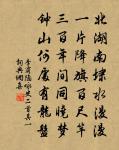 北湖南埭水漫漫
一片降旗百尺竿
三百年间同晓梦
钟山何处有龙盘
李商隐咏史二首其一
词典网集